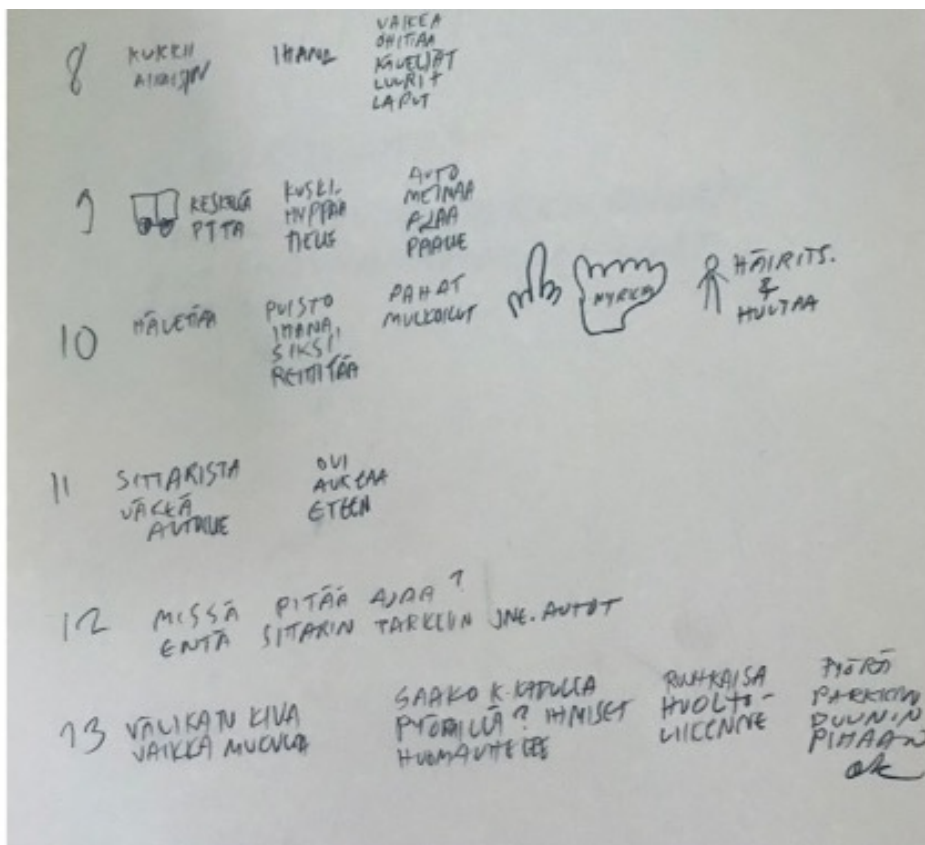 8
KUKKII
AIKAISIN
IHANA
VAIKEA
OHITTAA
KÄVELIJÄT
LUURIT
LAPUT
9
KESKELLÄ
PTTA
KUSKI
HYPPÄÄ
TIELLE
AUTO
MEINAA
AJAA
PÄÄLLE
10
HÄVETTÄÄ
PUISTO
IHANA,
SIKSI
REITITÄÄ
PAHAT
MULKOILUT
NYRKKI
HÄIRITS.
&
HUUTAA
11
SITTARISTA
VÄLLÄ
AUTOILLE
OVI
AUKEAA
ETEEN
12 MISSÄ PITÄÄ AJAA?
ENTÄ SITARIN TARKEUN JNE. AUTOT
13
VÄLIKATU KIVA
VAIKKA MUKULA
SAAKO K-KADULLA
PYÖRÄILLÄ? IHMISET
HUOMAUTTELEE
RUUHKAISA
HUOLTO-
LIIKENNE
PYÖRÄ
PARKKIIN
DUUNIN
PIHAAN
ok